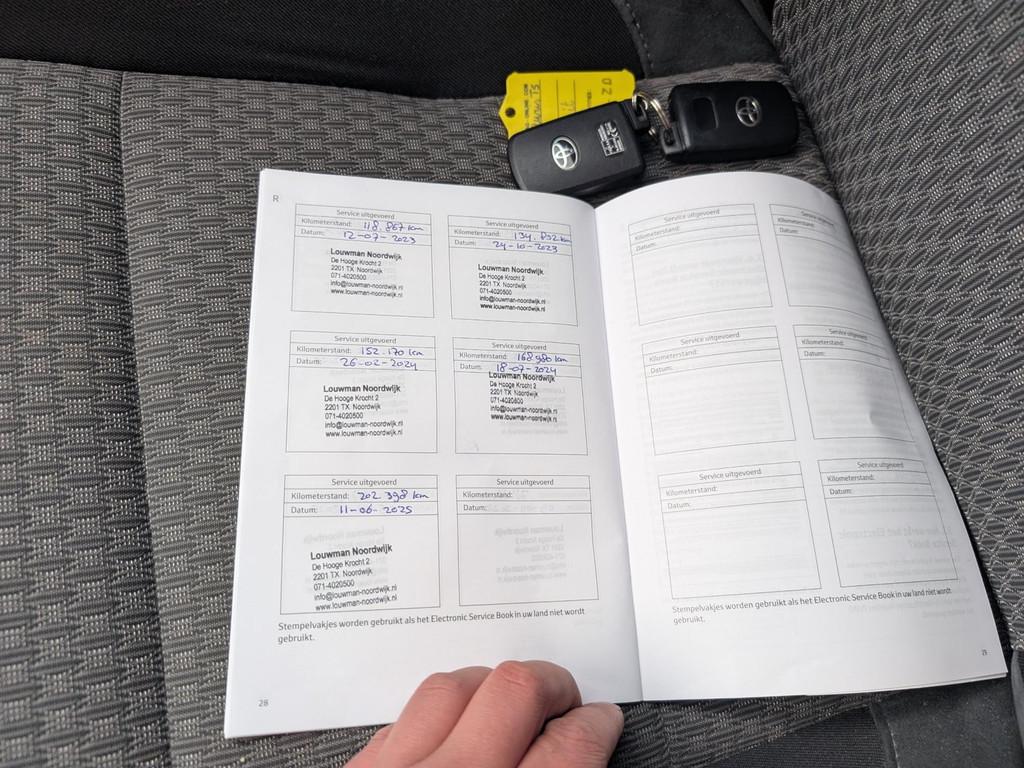 R
Service uitgevoerd
Kilometerstand: 118.867 km
Datum: 12-07-2023
Louwman Noordwijk
De Hooge Krocht 2
2201 TX Noordwijk
071-4020500
info@louwman-noordwijk.nl
www.louwman-noordwijk.nl
Service uitgevoerd
Kilometerstand: 134.832 km
Datum: 24-10-2023
Louwman Noordwijk
De Hooge Krocht 2
2201 TX Noordwijk
071-4020500
info@louwman-noordwijk.nl
www.louwman-noordwijk.nl
Service uitgevoerd
Kilometerstand: 152.170 km
Datum: 26-02-2024
Louwman Noordwijk
De Hooge Krocht 2
2201 TX Noordwijk
071-4020500
info@louwman-noordwijk.nl
www.louwman-noordwijk.nl
Service uitgevoerd
Kilometerstand: 168.980 km
Datum: 18-07-2024
Louwman Noordwijk
De Hooge Krocht 2
2201 TX Noordwijk
071-4020500
info@louwman-noordwijk.nl
www.louwman-noordwijk.nl
Service uitgevoerd
Kilometerstand: 202 398 km
Datum: 11-06-2025
Louwman Noordwijk
De Hooge Krocht 2
2201 TX Noordwijk
071-4020500
info@louwman-noordwijk.nl
www.louwman-noordwijk.nl
Service uitgevoerd
Kilometerstand:
Datum:
Stempelvakjes worden gebruikt als het Electronic Service Book in uw land niet wordt
gebruikt.
28
Service uitgevoerd
Kilometerstand:
Datum:
Service uitgevoerd
Kilometerstand:
Datum:
Service uitgevoerd
Kilometerstand:
Datum:
Service uitgevoerd
Kilometerstand:
Datum:
Service uitgevoerd
Kilometerstand:
Datum:
Service uitgevoerd
Kilometerstand:
Datum:
Stempelvakjes worden gebruikt als het Electronic Service Book in uw land niet wordt
gebruikt.